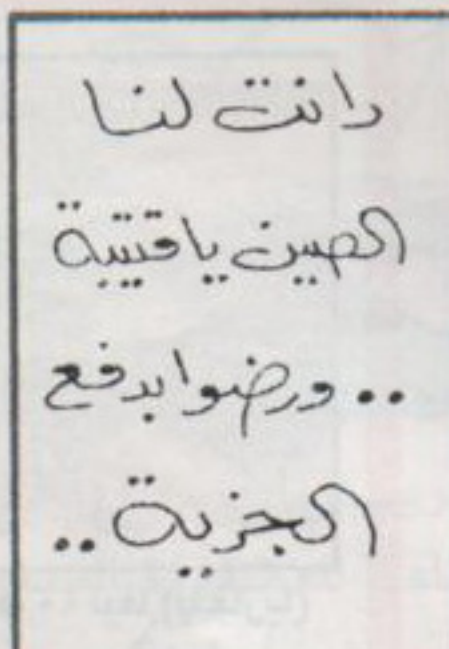 دانت لنا
الصين يا قتيبة
.. ورضوا بدفع
الجزية ..